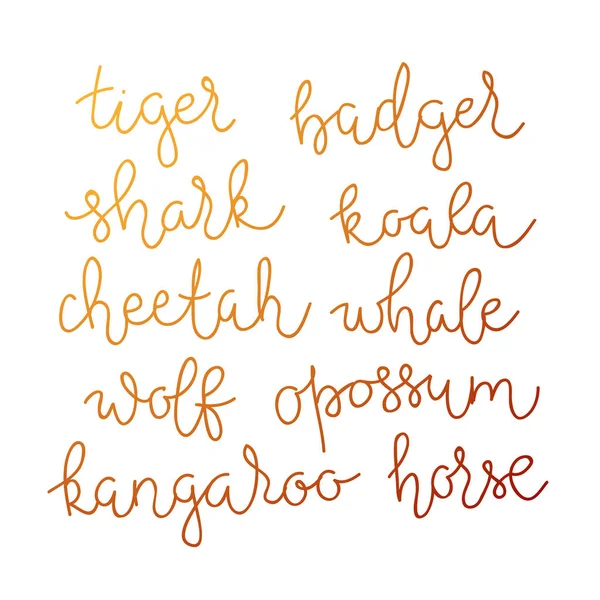 tiger badger
shark koala
cheetah whale
wolf opossum
kangaroo horse